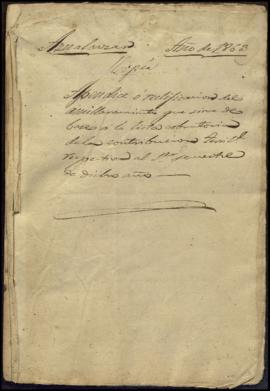 Aznalcazar Año de 1863
Copia
Apendice ó rectificacion del
amillaramiento que sirve de
base á la lista cobratoria
de la contribucion Territl.
respectiva al 1er semestre
de dicho año